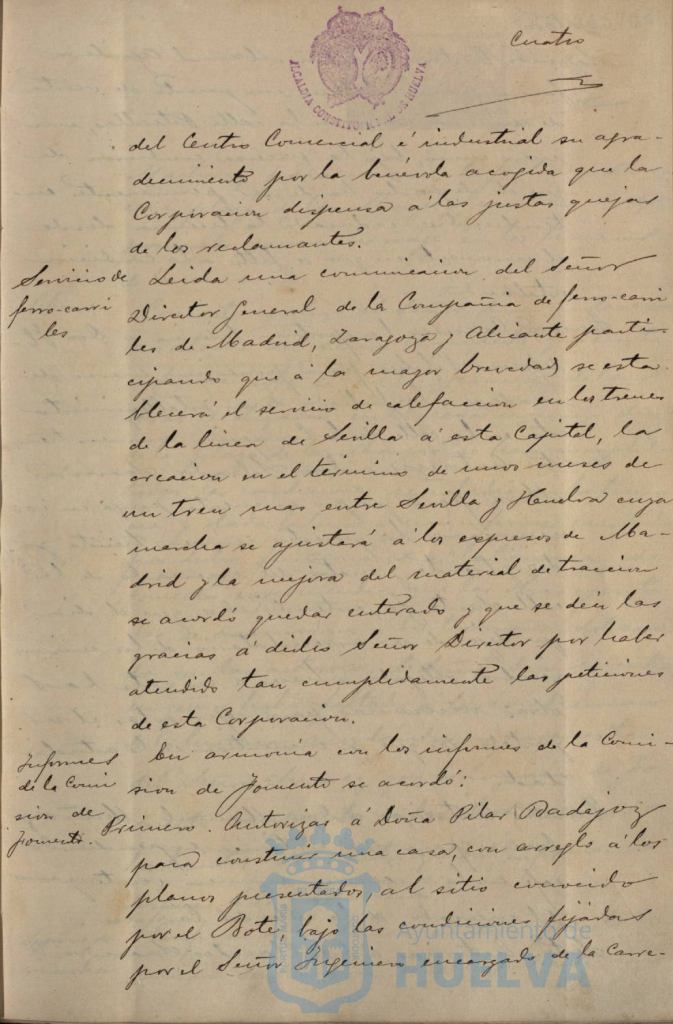 Cuatro
ALCALDIA CONSTITUCIONAL DE HUELVA
del Centro Comercial é industrial su agra-
decimiento por la benévola acogida que la
Corporacion dispensa á las justas quejas
de los reclamantes.
Servicio de
ferro-carri
les
Leida una comunicacion del Señor
Director General de la Compañia de ferro-carri
les de Madrid, Zaragoza y Alicante parti-
cipando que á la mayor brevedad se esta-
blecerá el servicio de calefaccion en los trenes
de la linea de Sevilla á esta Capital, la
creacion en el término de unos meses de
un tren mas entre Sevilla y Huelva cuya
marcha se ajustará á los expresos de Ma-
drid y la mejora del material de traccion
se acordó quedar enterado y que se den las
gracias á dicho Señor Director por haber
atendido tan cumplidamente las peticiones
de esta Corporacion.
Informes
de la Comi
sion de
Fomento.
En armonía con los informes de la Comi-
sion de Fomento se acordó:
Primero. Autorizar á Doña Pilar Badajoz
para construir una casa, con arreglo á los
planos presentados, al sitio conocido
por el Bote, bajo las condiciones fijadas
por el Señor Ingeniero encargado de la Carre-
Ayuntamiento de
HUELVA